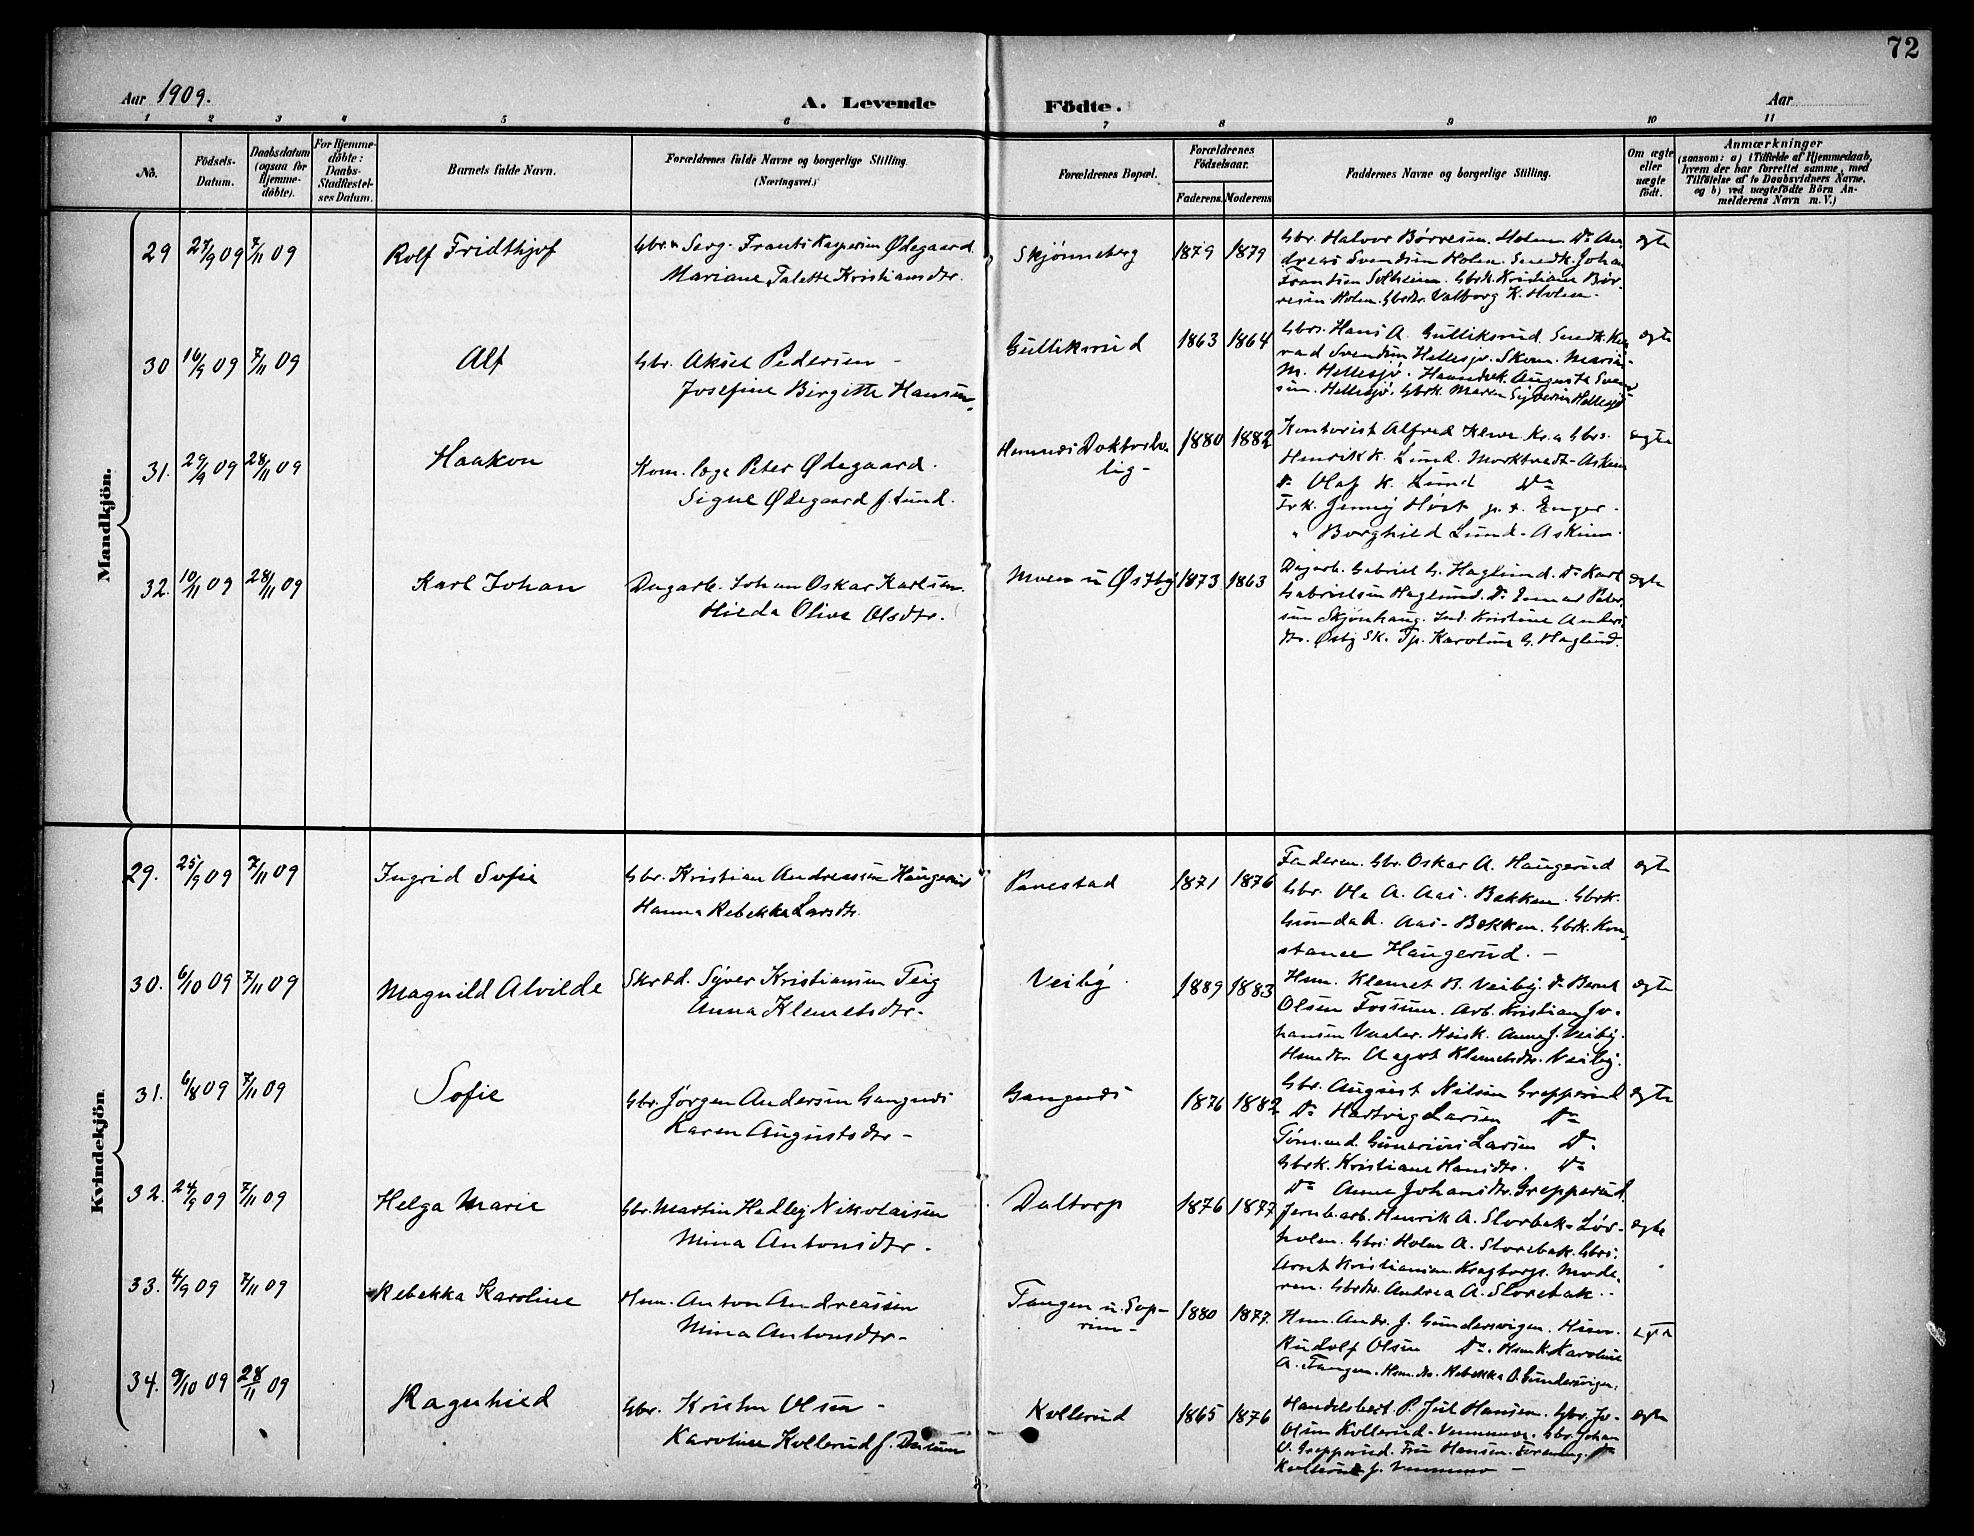 72
Aar 1909.
A. Levende Födte.
Aar
1 2 3 4 5 6 7 8 9 10 11
No.
Födsels-Datum.
Daabsdatum (ogsaa for Hjemme-döbte).
For Hjemme-döbte: Daabs-Stadfæstel-ses Datum.
Barnets fulde Navn.
Forældrenes fulde Navne og borgerlige Stilling.
(Næringsvei.)
Forældrenes Bopæl.
Forældrenes Födselsaar.
Faderens. Moderens.
Faddernes Navne og borgerlige Stilling.
Om ægte eller uægte födt.
Anmærkninger
(saasom: a) i Tilfælde af Hjemmedaab,
hvem der har forrettet samme, med
Tilföielse af to Daabsvidners Navne.
og b) ved uægtefödte Börn An-
melderens Navn m. V.)
Mandkjön.
29 27/9 09 7/11 09 Rolf Fridthjof
Gbr. Serg. Frants Kaspersen Ødegaard
Mariane Talette Kristiansdtr.
Skjønneberg 1879 1879
Gbr. Halvor Børresen Holen Do An-
dreas Svendsen Holen. Smedk. Johan
Frantsen Solheim. Gbrk. Kristiane Bør-
resen Holen. Gbrdtr. Valborg K. Holen.
ægte
30 16/9 09 7/11 09 Alf
Gbr. Aksel Pedersen -
Josefine Birgitte Hansen
Gulliksrud 1863 1864
Gbrs. Hans A. Gulliksrud Smedk. Kon-
rad Svendsen Hellesjø. Skom. Marin
M. Hellesjø. Auguste Svend-
sen. Hellesjø. Gbrk. Maren Hellesjø
ægte
31. 29/9 09 28/11 09 Haakon
Kom. læge Peter Ødegaard.
Signe Ødegaard f. Lund.
Hemnes Doktorbo-
lig- 1880 1882
Kontorist Alfred Kr.a Gbrs.
Henrik K. Lund. Askim
Do Olaf K. Lund Do
Frk. Jenny Høst p. t. Enger.
" Borghild Lund. Askim.
ægte
32. 10/11 09 28/11 09 Karl Johan
Dagarb. Johan Oskar Karlsen.
Hilda Olive Olsdtr.
Moen u Østby 1873 1863
Dagarb. Gabriel G. Haglund. Do Karl
Gabrielsen Haglund. Do Einar Peter-
sen Skjønhaug. Ind. Kristine Anders-
dtr. Østby Sk. Tp. Karoline G. Haglund.
ægte
Kvindekjön.
29. 25/9 09 7/11 09 Ingrid Sofie
Gbr. Kristian Andreassen Haugerud
Hanna Rebekka Larsdtr.
Panestad 1871 1876
Faderen. Gbr. Oskar A. Haugerud
Gbr. Ole A. Aas- Bakken. Gbrk.
Gunda A. Aas- Bakken. Gbrk. Kon-
stance Haugerud. -
ægte
30. 6/10 09 7/11 09 Magnild Alvilde
Skræd. Syver Kristiansen Teig
Anna Klemetsdtr.
Veiby 1889 1883
Hsm. Klemet B. Veiby. Do Bernt
Olsen Fossum. Arb. Kristian Jo-
hansen Vaaler. Hsmk. Anne J. Veiby.
Hsmdtr Aagot Klemetsdtr. Veiby.
ægte
31. 6/8 09 7/11 09 Sofie
Gbr Jørgen Andersen Gangnes
Karen Augustsdtr -
Gangnes 1876 1882
Gbr. August Nilsen Grepperud
Do Hartvig Larsen Do
Tømmerm. Gunerius Larsen Do
Gbrk. Kristiane Hansdtr. Do
Do Anne Johansdtr. Grepperud
ægte
32. 24/9 09 7/11 09 Helga Marie
Gbr. Martin Hedley Nikolaisen
Mina Antonsdtr.
Daltorp 1876 1877
Jernb. arb. Henrik A. Slorbak. Løv-
holm. Gbrs Holm A. Slorebak. Gbrs.
Arnt Kristiansen. Kragtorp. Mode-
ren. Gbrdtr. Andrea A. Slorebak.
ægte
33. 4/9 09 7/11 09 Rebekka Karoline
Hsm. Anton Andreassen
Mina Antonsdtr-
Tangen u. Sop-
rim- 1880 1877
Hsm. Andr. J. Gundersvigen.
Rudolf Olsen Do. Hsmk. Karoline
A. Tangen. Hsm.dtr. Rebekka A. Gundersvigen.
ægte
34. 9/10 09 28/11 09 Ragnhild
Gbr. Kristen Olsen -
Karoline Kollerud f. Dalum
Kollerud 1865 1876
Handelsbest. P. Jul Hansen. Gbr. Jo-
Olsen Kollerud. Gbr. Johan
O. Grepperud. Fru Hansen. Do
Kollerud f. -
ægte